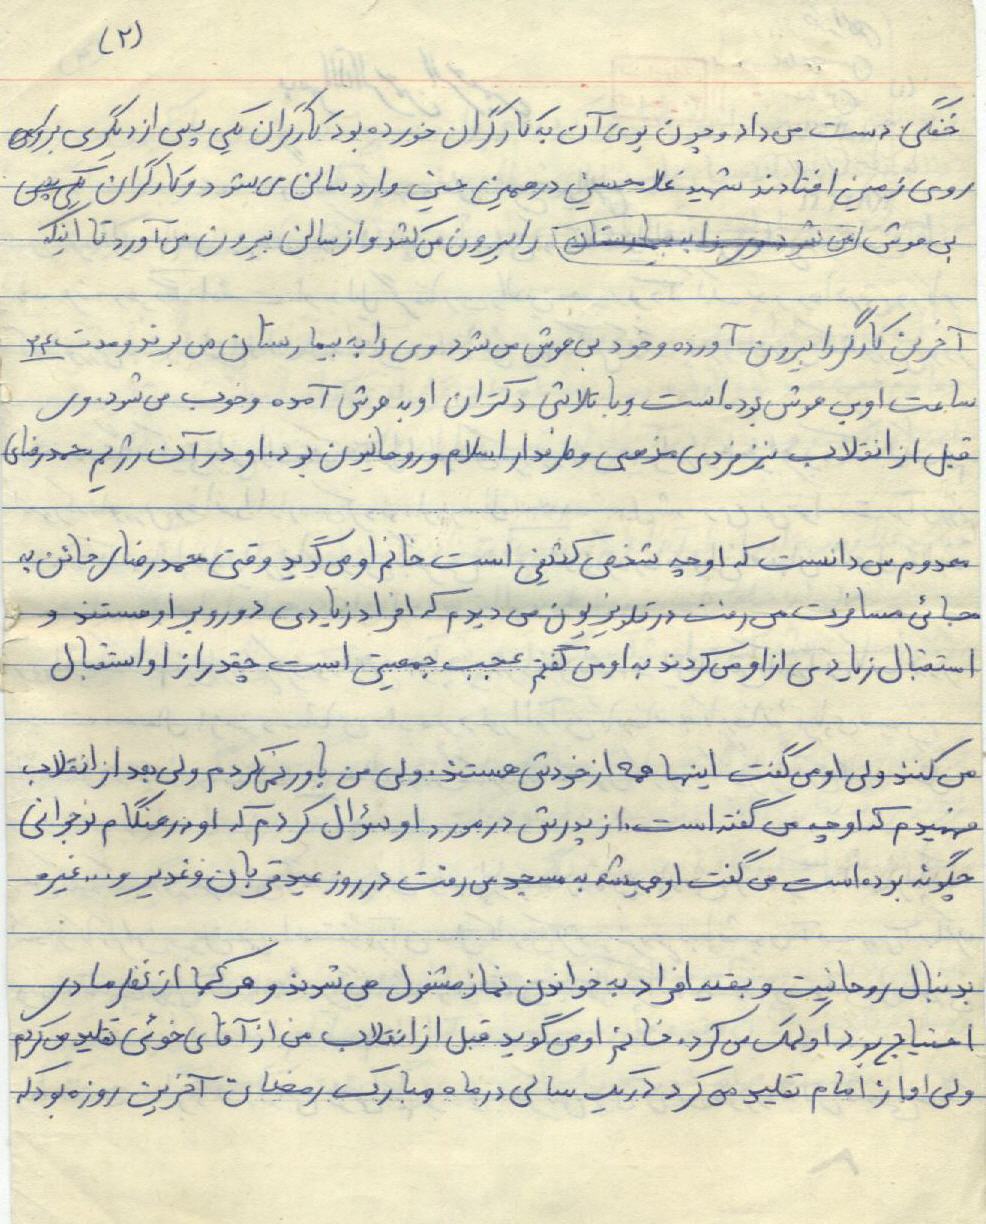 (۲)
خفگی دست می داد و چون بوی آن به کارگران خورده بود کارگران یکی پس از دیگری بر روی
روی زمین افتادند شهید غلامحسین در همین حین وارد سالن می شود و کارگران یکی پس
بی هوش را بیرون می کشد و از سالن بیرون می آورد تا اینکه
آخرین کارگر را بیرون آورده و خود بی هوش می شود وی را به بیمارستان می برند و مدت ۲۴
ساعت او بی هوش بوده است و با تلاش دکتران او به هوش آمده و خوب می شود. وی
قبل از انقلاب نیز فردی مذهبی و طرفدار اسلام و روحانیون بود. او در آن رژیم محمدرضای
معدوم می دانست که او چه شخص کثیفی است خانم او می گوید وقتی محمدرضای خائن به
جائی مسافرت می رفت در تلویزیون می دیدم که افراد زیادی دور و بر او هستند و
استقبال زیادی از او می کردند به او می گفتم عجب جمعیتی است چقدر از او استقبال
می کنند ولی او می گفت اینها همه از خودش هستند. ولی من باور نمی کردم ولی بعد از انقلاب
فهمیدم که او چه می گفته است. از پدرش در مورد او سؤال کردم که او در هنگام نوجوانی
چگونه بوده است می گفت او همیشه به مسجد می رفت در روز عید قربان و غدیر و... غیره
بدنبال روحانیت و بقیه افراد به خواندن نماز مشغول می شوند و هر کجا از نظر مادی
احتیاج بود او کمک می کرد. خانم او می گوید قبل از انقلاب من از آقای خوئی تقلید می کردم
ولی او از امام تقلید می کرد در یک سالی در ماه مبارک رمضان آخرین روزه بود که